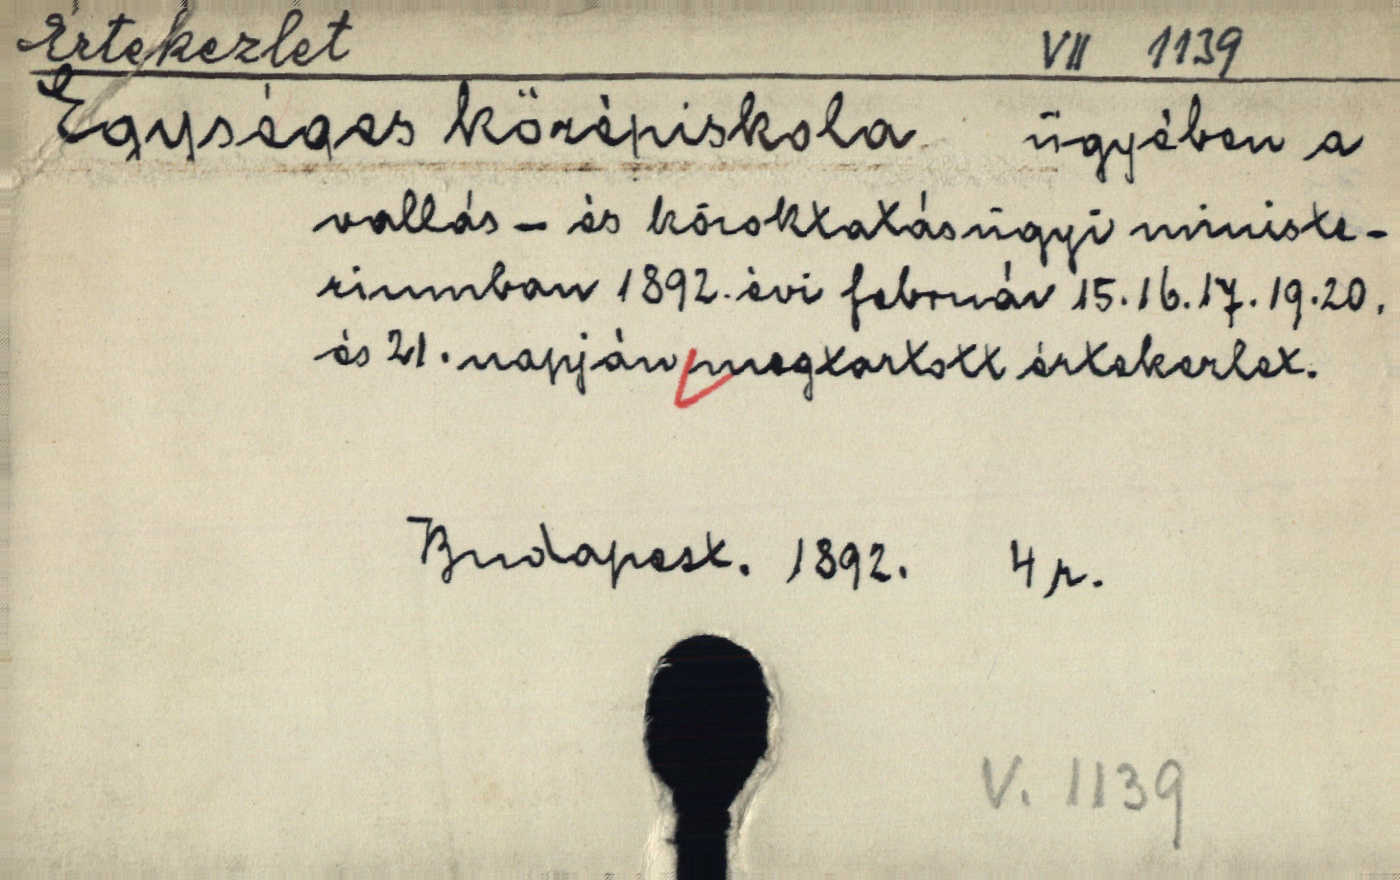 Értekezlet VII 1139
Egységes középiskola ügyében a
vallás- és közoktatásügyi ministe-
riumban 1892. évi február 15.16.17.19.20.
és 21. napján megtartott értekezlet.
Budapest. 1892. 4 r.
V. 1139